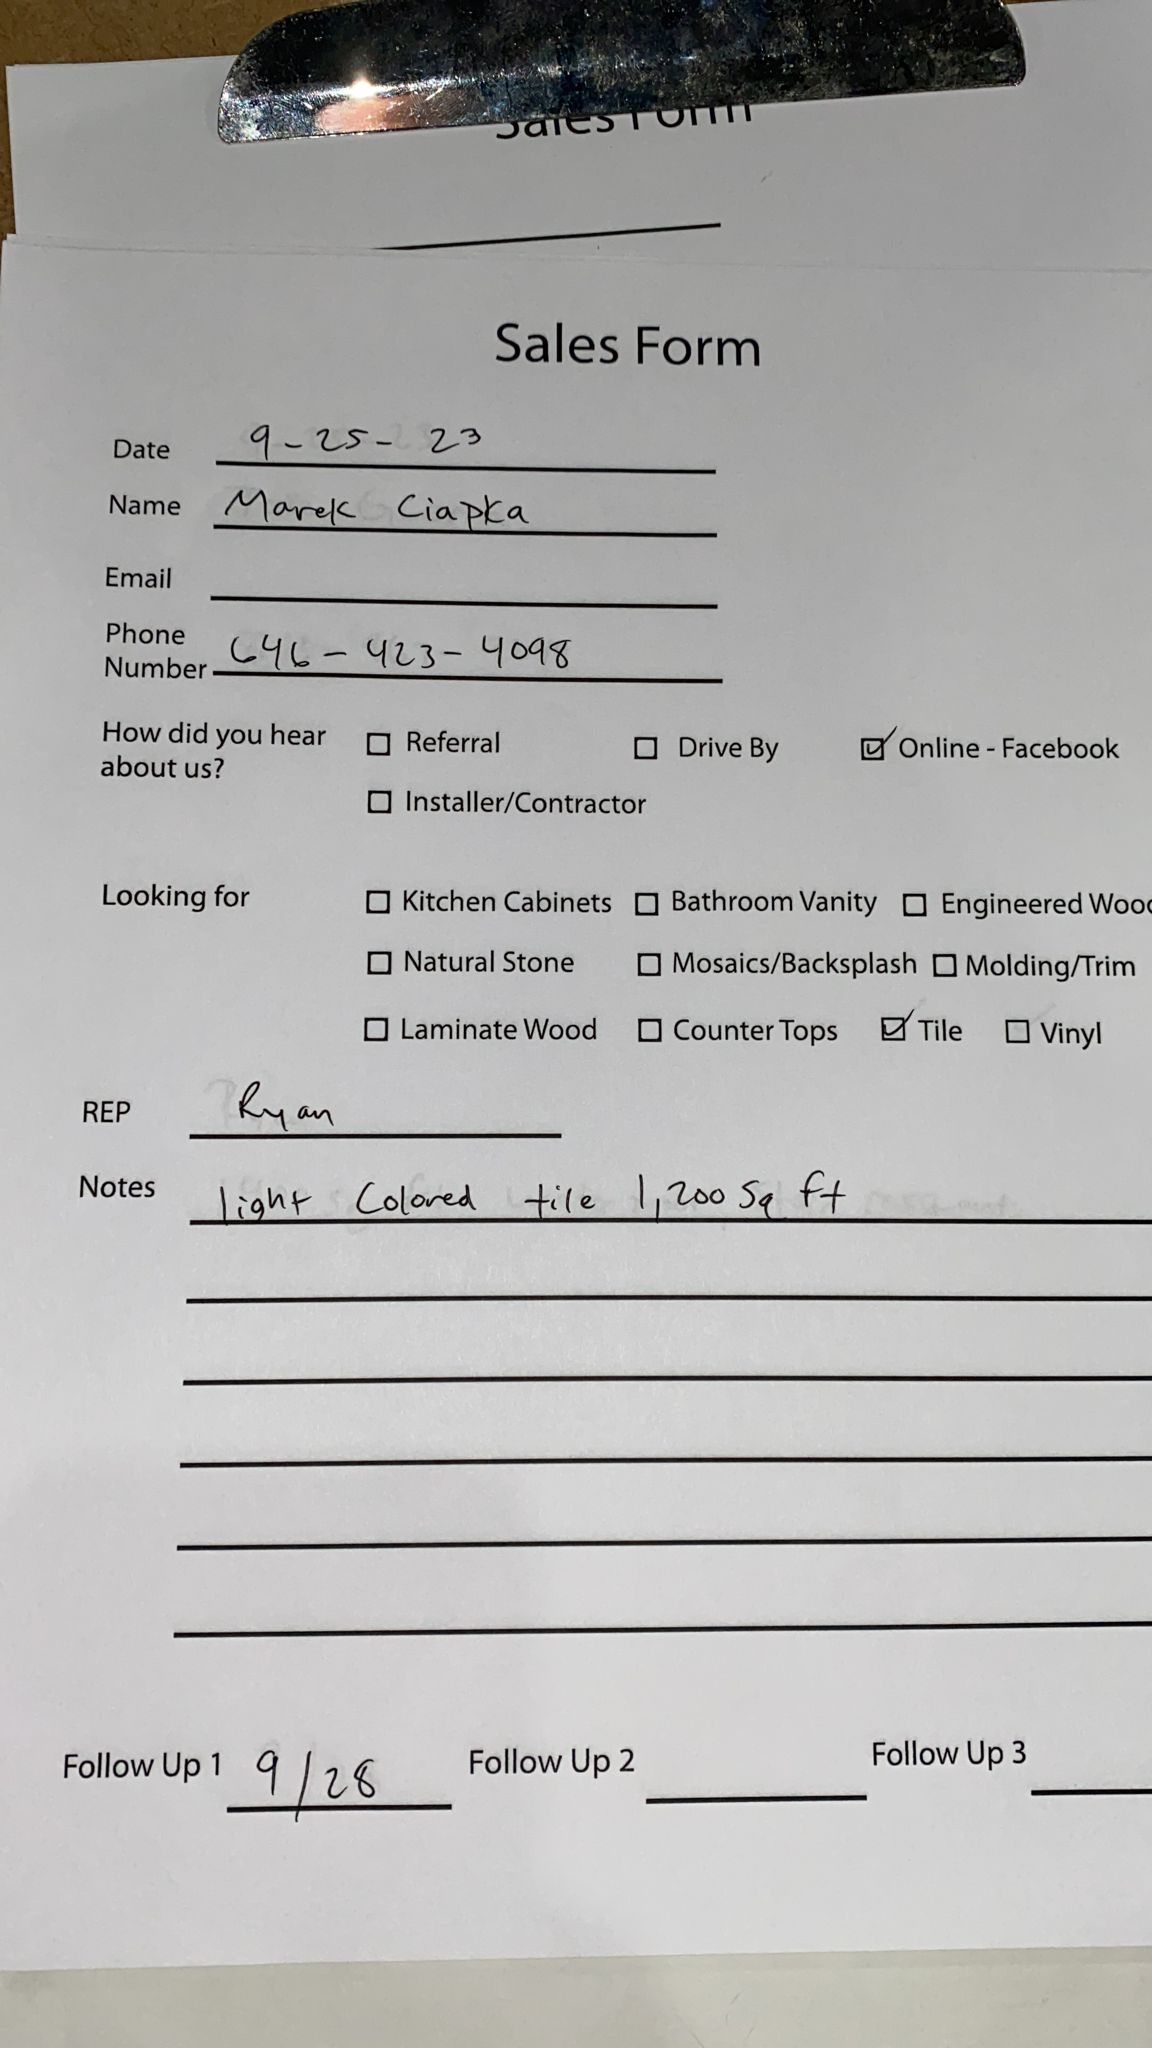 Sales Form
Sales Form
Date 9-25-23
Name Marek Ciapka
Email
Phone
Number 646-423-4098
How did you hear
about us?
☐ Referral ☐ Drive By ☑ Online - Facebook
☐ Installer/Contractor
Looking for
☐ Kitchen Cabinets ☐ Bathroom Vanity ☐ Engineered Woo
☐ Natural Stone ☐ Mosaics/Backsplash ☐ Molding/Trim
☐ Laminate Wood ☐ Counter Tops ☑ Tile ☐ Vinyl
REP Ryan
Notes light Colored tile 1,200 Sq ft
Follow Up 1 9/28 Follow Up 2 Follow Up 3